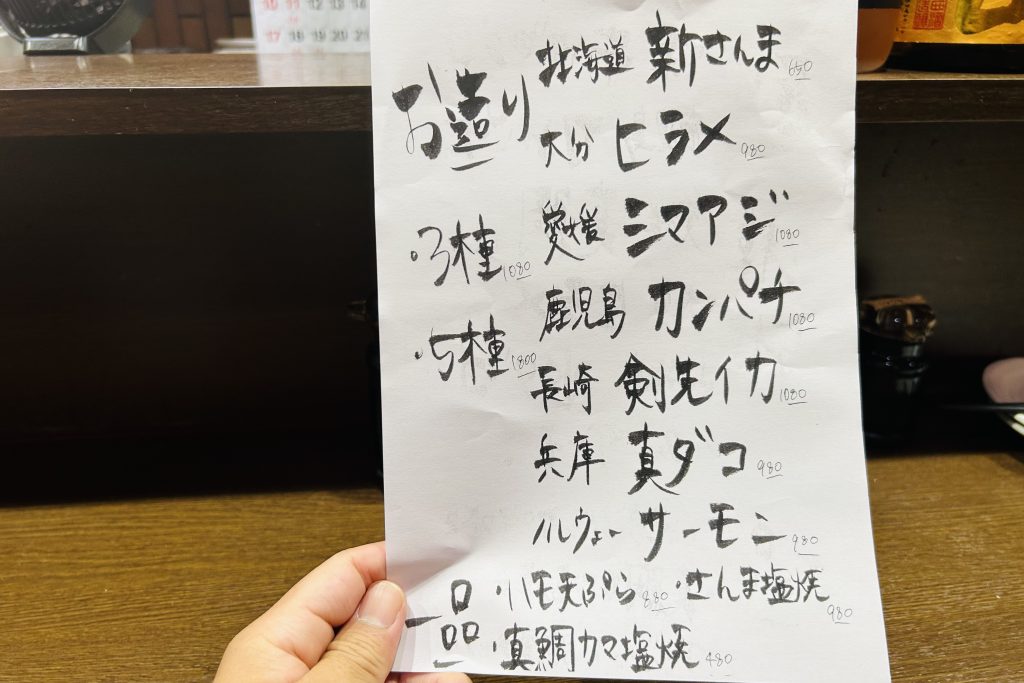 10 11 12 13 14
17 18 19 20 21
お造り
・3種 1080
・5種 1800
北海道 新さんま 650
大分 ヒラメ 980
愛媛 シマアジ 1080
鹿児島 カンパチ 1080
長崎 剣先イカ 1080
兵庫 真ダコ 980
ノルウェー サーモン 980
一品
・ハモ天ぷら 880 ・さんま塩焼 980
・真鯛カマ塩焼 480